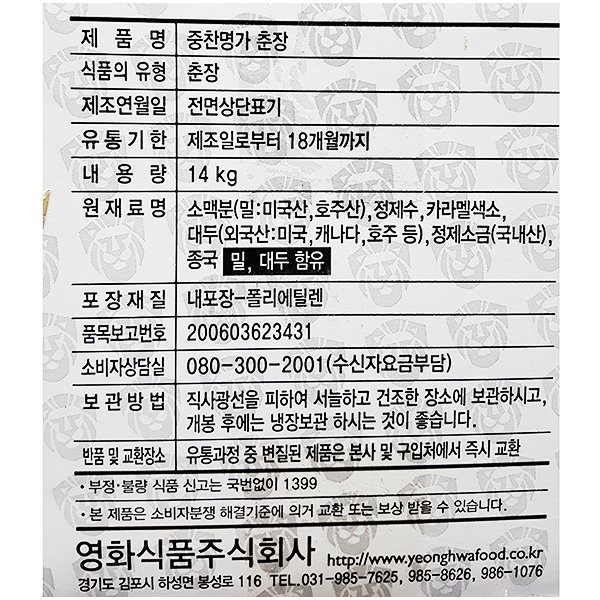 제 품 명 중찬명가 춘장
식품의 유형 춘장
제조연월일 전면상단표기
유 통 기 한 제조일로부터 18개월까지
내 용 량 14 kg
원 재 료 명 소맥분(밀:미국산,호주산),정제수,카라멜색소,
대두(외국산:미국,캐나다,호주 등),정제소금(국내산),
종국 밀, 대두 함유
포 장 재 질 내포장-폴리에틸렌
품목보고번호 200603623431
소비자상담실 080-300-2001(수신자요금부담)
보 관 방 법 직사광선을 피하여 서늘하고 건조한 장소에 보관하시고,
개봉 후에는 냉장보관 하시는 것이 좋습니다.
반품 및 교환장소 유통과정 중 변질된 제품은 본사 및 구입처에서 즉시 교환
· 부정·불량 식품 신고는 국번없이 1399
· 본 제품은 소비자분쟁 해결기준에 의거 교환 또는 보상 받을 수 있습니다.
영화식품주식회사 http://www.yeonghwafood.co.kr
경기도 김포시 하성면 봉성로 116 TEL.031-985-7625, 985-8626, 986-1076